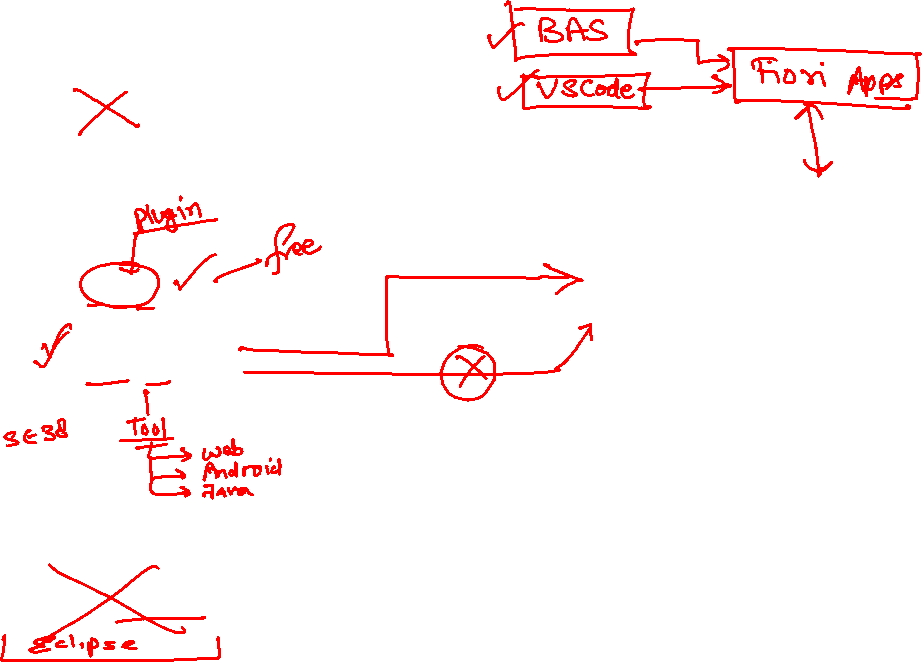 BAS
VSCode
Fiori Apps
plugin
free
SE38
Tool
Web
Android
Java
Eclipse